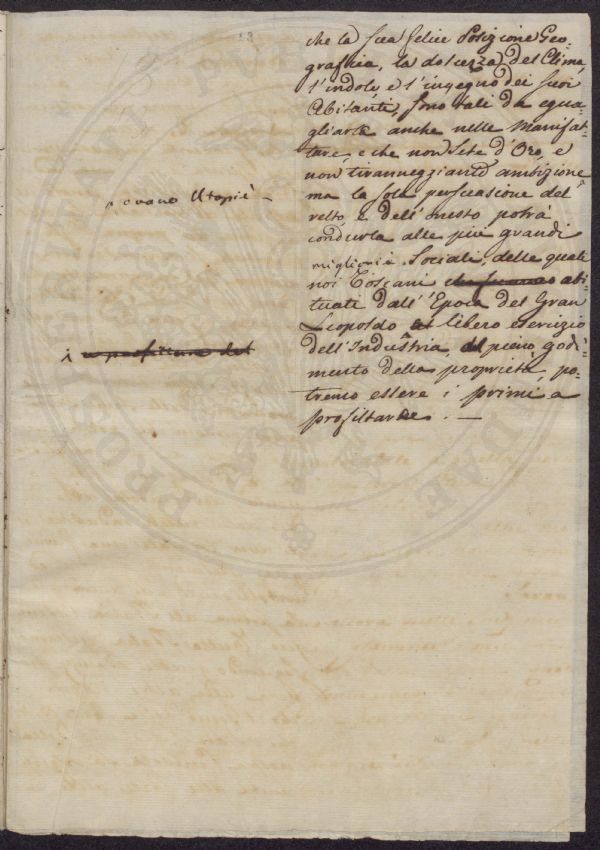 che la sua felice Posizione Geo-
grafica, la dolcezza del Clima,
l'indole e l'ingegno dei suoi
Abitanti, sono tali da egua-
gliarla anche nelle Manifat-
ture, e che non Sete d'Oro, e
non tiranneggiante ambizione
ma la sola persuasione del
retto, e dell'onesto potrà
condurla alle più grandi
migliorie Sociali, delle quali
noi Toscani abi-
tuati dall'Epoca del Gran
Leopoldo al libero esercizio
dell'Industria, al pieno godi-
mento della proprietà, po-
tremo essere i primi a
profittarne. —
o vano Utopie —
i a profittare del
PROS
DAE